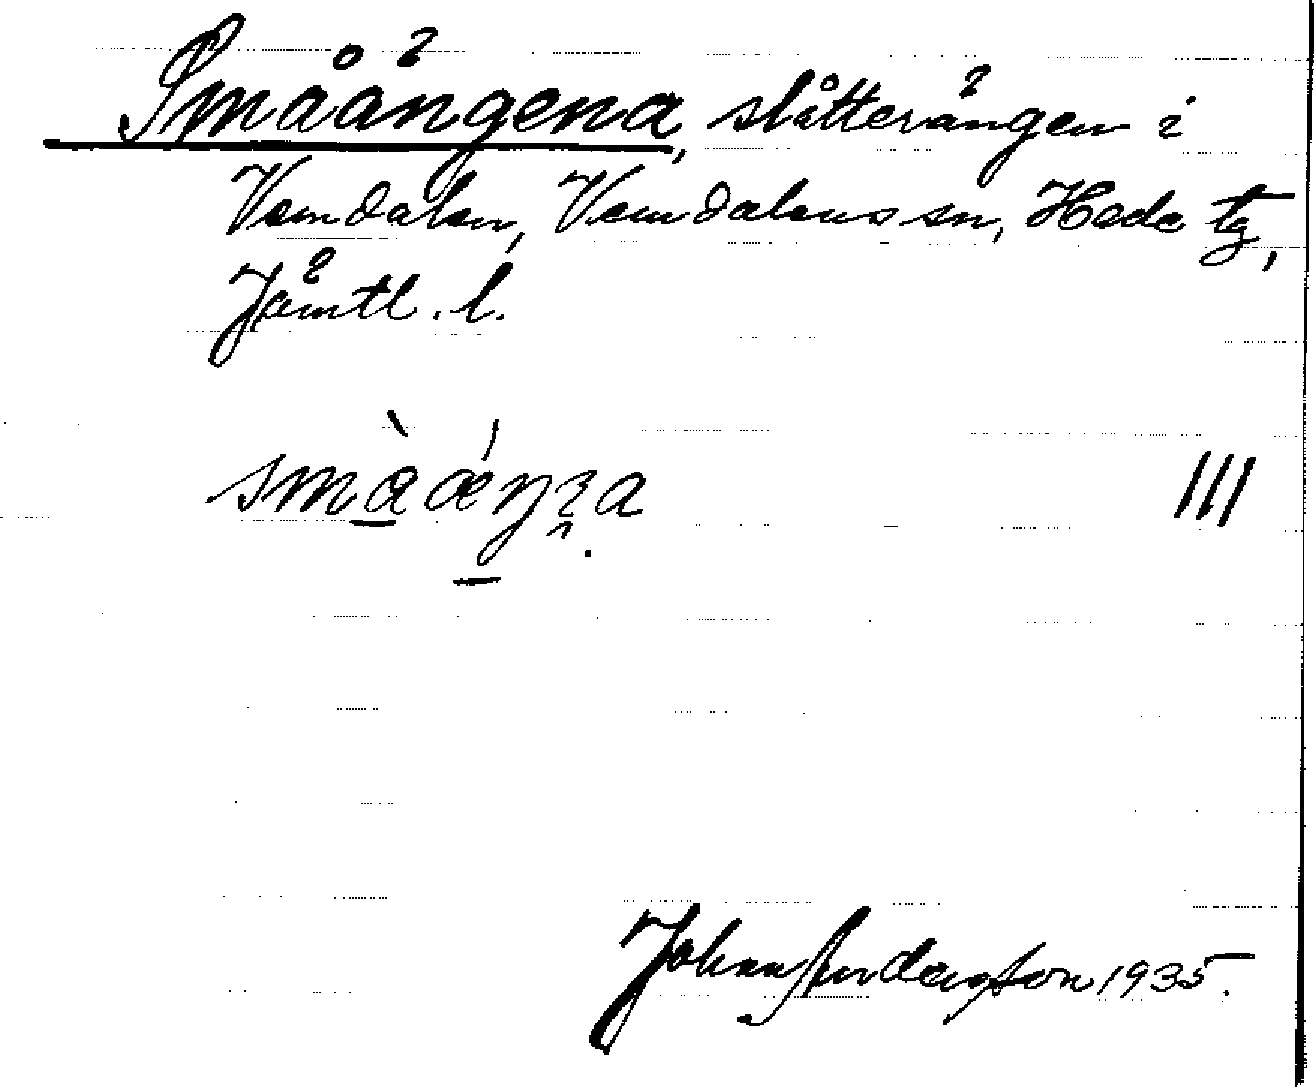 Småängena, slåtterängen i
Vemdalen, Vemdalens sn, Hede tg,
Jämtl. l.
III
Johan Anderson 1935.